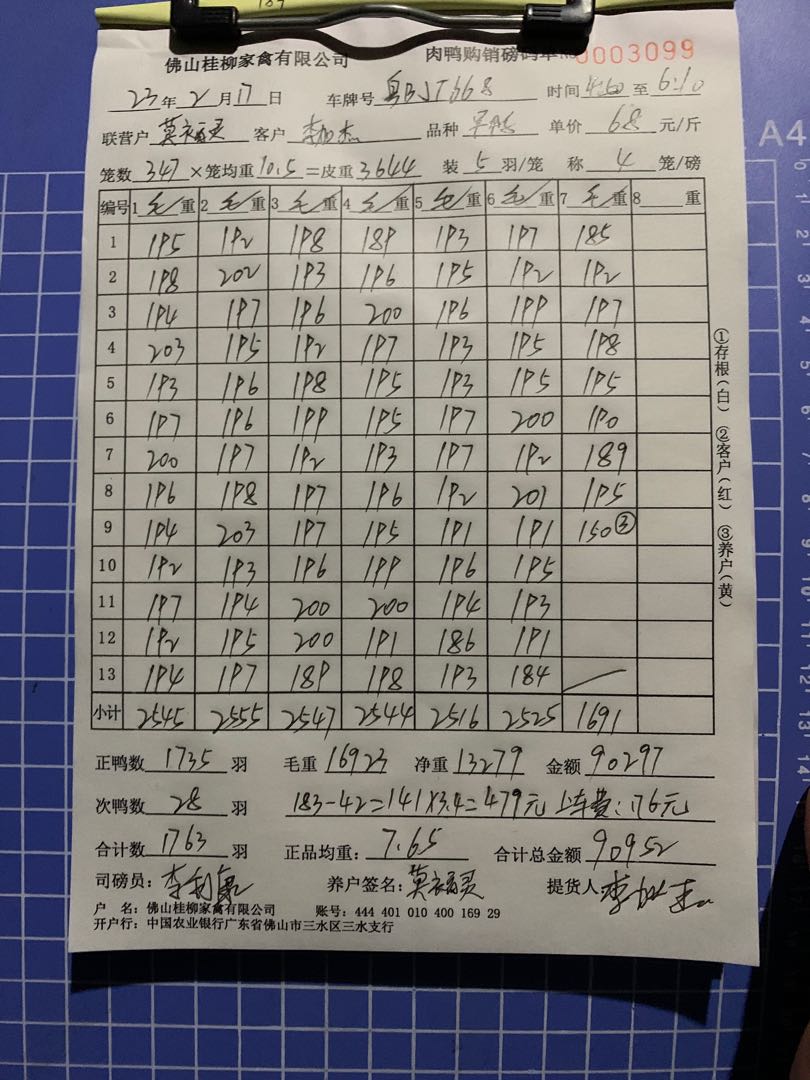 189
佛山桂柳家禽有限公司 肉鸭购销磅码单 No 0003099
23年2月17日 车牌号 粤BJT668 时间 4:50 至 6:10
联营户 莫 灵 客户 李 杰 品种 单价 6.8 元/斤
笼数 347 ×笼均重 10.5 =皮重 3644 装 5 羽/笼 称 4 笼/磅
编号 1毛/重 2毛/重 3毛/重 4毛/重 5毛/重 6毛/重 7毛/重 8 重
1 195 192 198 189 193 197 185
2 198 202 193 196 195 192 192
3 194 197 196 200 196 199 197
4 203 195 192 197 193 195 198
5 193 196 198 195 193 195 195
6 197 196 199 195 197 200 190
7 200 197 192 193 197 192 189
8 196 198 197 196 192 201 195
9 194 203 197 195 191 191 150③
10 192 193 196 199 196 195
11 197 194 200 200 194 193
12 192 195 200 191 186 191
13 194 197 189 198 193 184
小计 2545 2555 2547 2544 2516 2525 1691
正鸭数 1735 羽 毛重 16923 净重 13279 金额 90297
次鸭数 28 羽 183-42=141×3.4=479元 上车费:176元
合计数 1763 羽 正品均重: 7.65 合计总金额 90952
司磅员: 李 养户签名: 莫 灵 提货人 李
户 名: 佛山桂柳家禽有限公司 账号: 444 401 010 400 169 29
开户行: 中国农业银行广东省佛山市三水区三水支行
①存根(白) ②客户(红) ③养户(黄)
A4
0
1
2
3
4
5
6
7
8
9
10
11
12
13
14